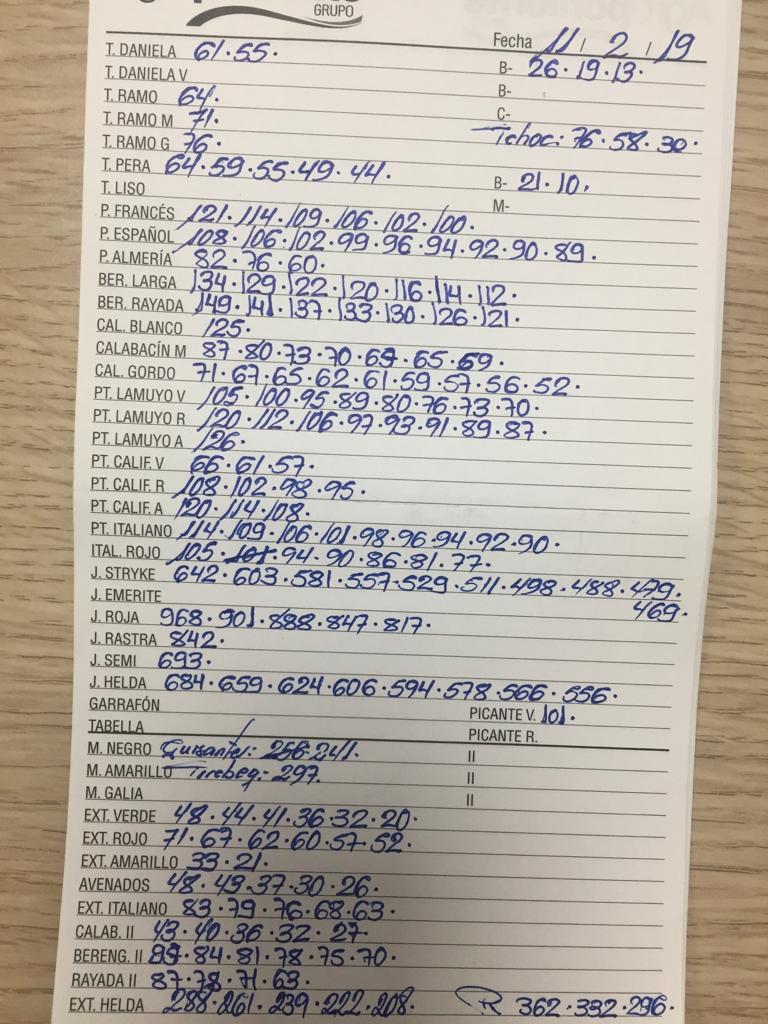 GRUPO
Fecha 11 / 2 / 19
T. DANELA 61·55· B- 26·19·13·
T. DANIELA V B-
T. RAMO 64· C-
T. RAMO M 71· Tchoc: 76·58·30·
T. RAMO G 76·
T. PERA 64·59·55·49·44· B- 21·10·
T. LISO M-
P. FRANCÉS 121·114·109·106·102·100·
P. ESPAÑOL 108·106·102·99·96·94·92·90·89·
P. ALMERÍA 82·76·60·
BER. LARGA 134·129·122·120·116·114·112·
BER. RAYADA 149·141·137·133·130·126·121·
CAL. BLANCO 125·
CALABACÍN M 87·80·73·70·67·65·69·
CAL. GORDO 71·67·65·62·61·59·57·56·52·
PT. LAMUYO V 105·100·95·89·80·76·73·70·
PT. LAMUYO R 120·112·106·97·93·91·89·87·
PT. LAMUYO A 126·
PT. CALIF. V 66·61·57·
PT. CALIF. R 108·102·98·95·
PT. CALIF. A 120·114·108·
PT. ITALIANO 114·109·106·101·98·96·94·92·90·
ITAL. ROJO 105·101·94·90·86·81·77·
J. STRYKE 642·603·581·557·529·511·498·488·479·
J. EMERITE 469·
J. ROJA 968·901·888·847·817·
J. RASTRA 842·
J. SEMI 693·
J. HELDA 684·659·624·606·594·578·566·556·
GARRAFÓN PICANTE V. 101·
TABELLA PICANTE R.
M. NEGRO Guisantes: 256·241· II
M. AMARILLO Tirabeq: 297· II
M. GALIA II
EXT. VERDE 48·44·41·36·32·20·
EXT. ROJO 71·67·62·60·57·52·
EXT. AMARILLO 33·21·
AVENADOS 48·43·37·30·26·
EXT. ITALIANO 83·79·76·68·63·
CALAB. II 43·40·36·32·27·
BERENG. II 89·84·81·78·75·70·
RAYADA II 87·78·71·63·
EXT. HELDA 288·261·239·222·208· R 362·332·296·